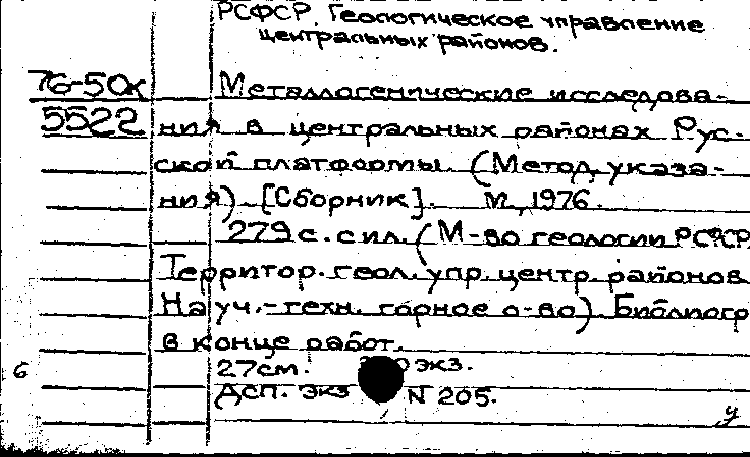 РСФСР. Геологическое управление
центральных районов.
76-50к
5522
Металлогенические исследова-
ния в центральных районах Рус-
ской платформы. (Метод. указа-
ния). [Сборник]. М., 1976.
279 с. с ил. (М-во геологии РСФСР.
Территор. геол. упр. центр. районов.
Науч.-техн. горное о-во) Библиогр.
в конце работ.
27см. экз.
ДСП. Экз N 205.
б
у